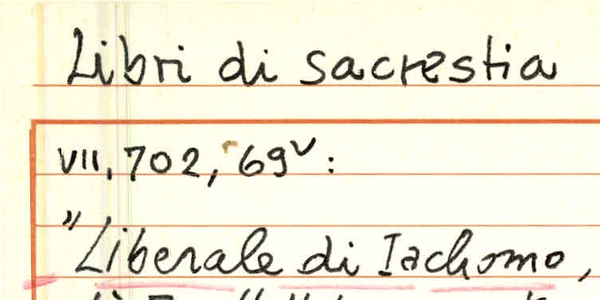 Libri di sacrestia
VII, 702, 69v:
"Liberale di Iachomo,